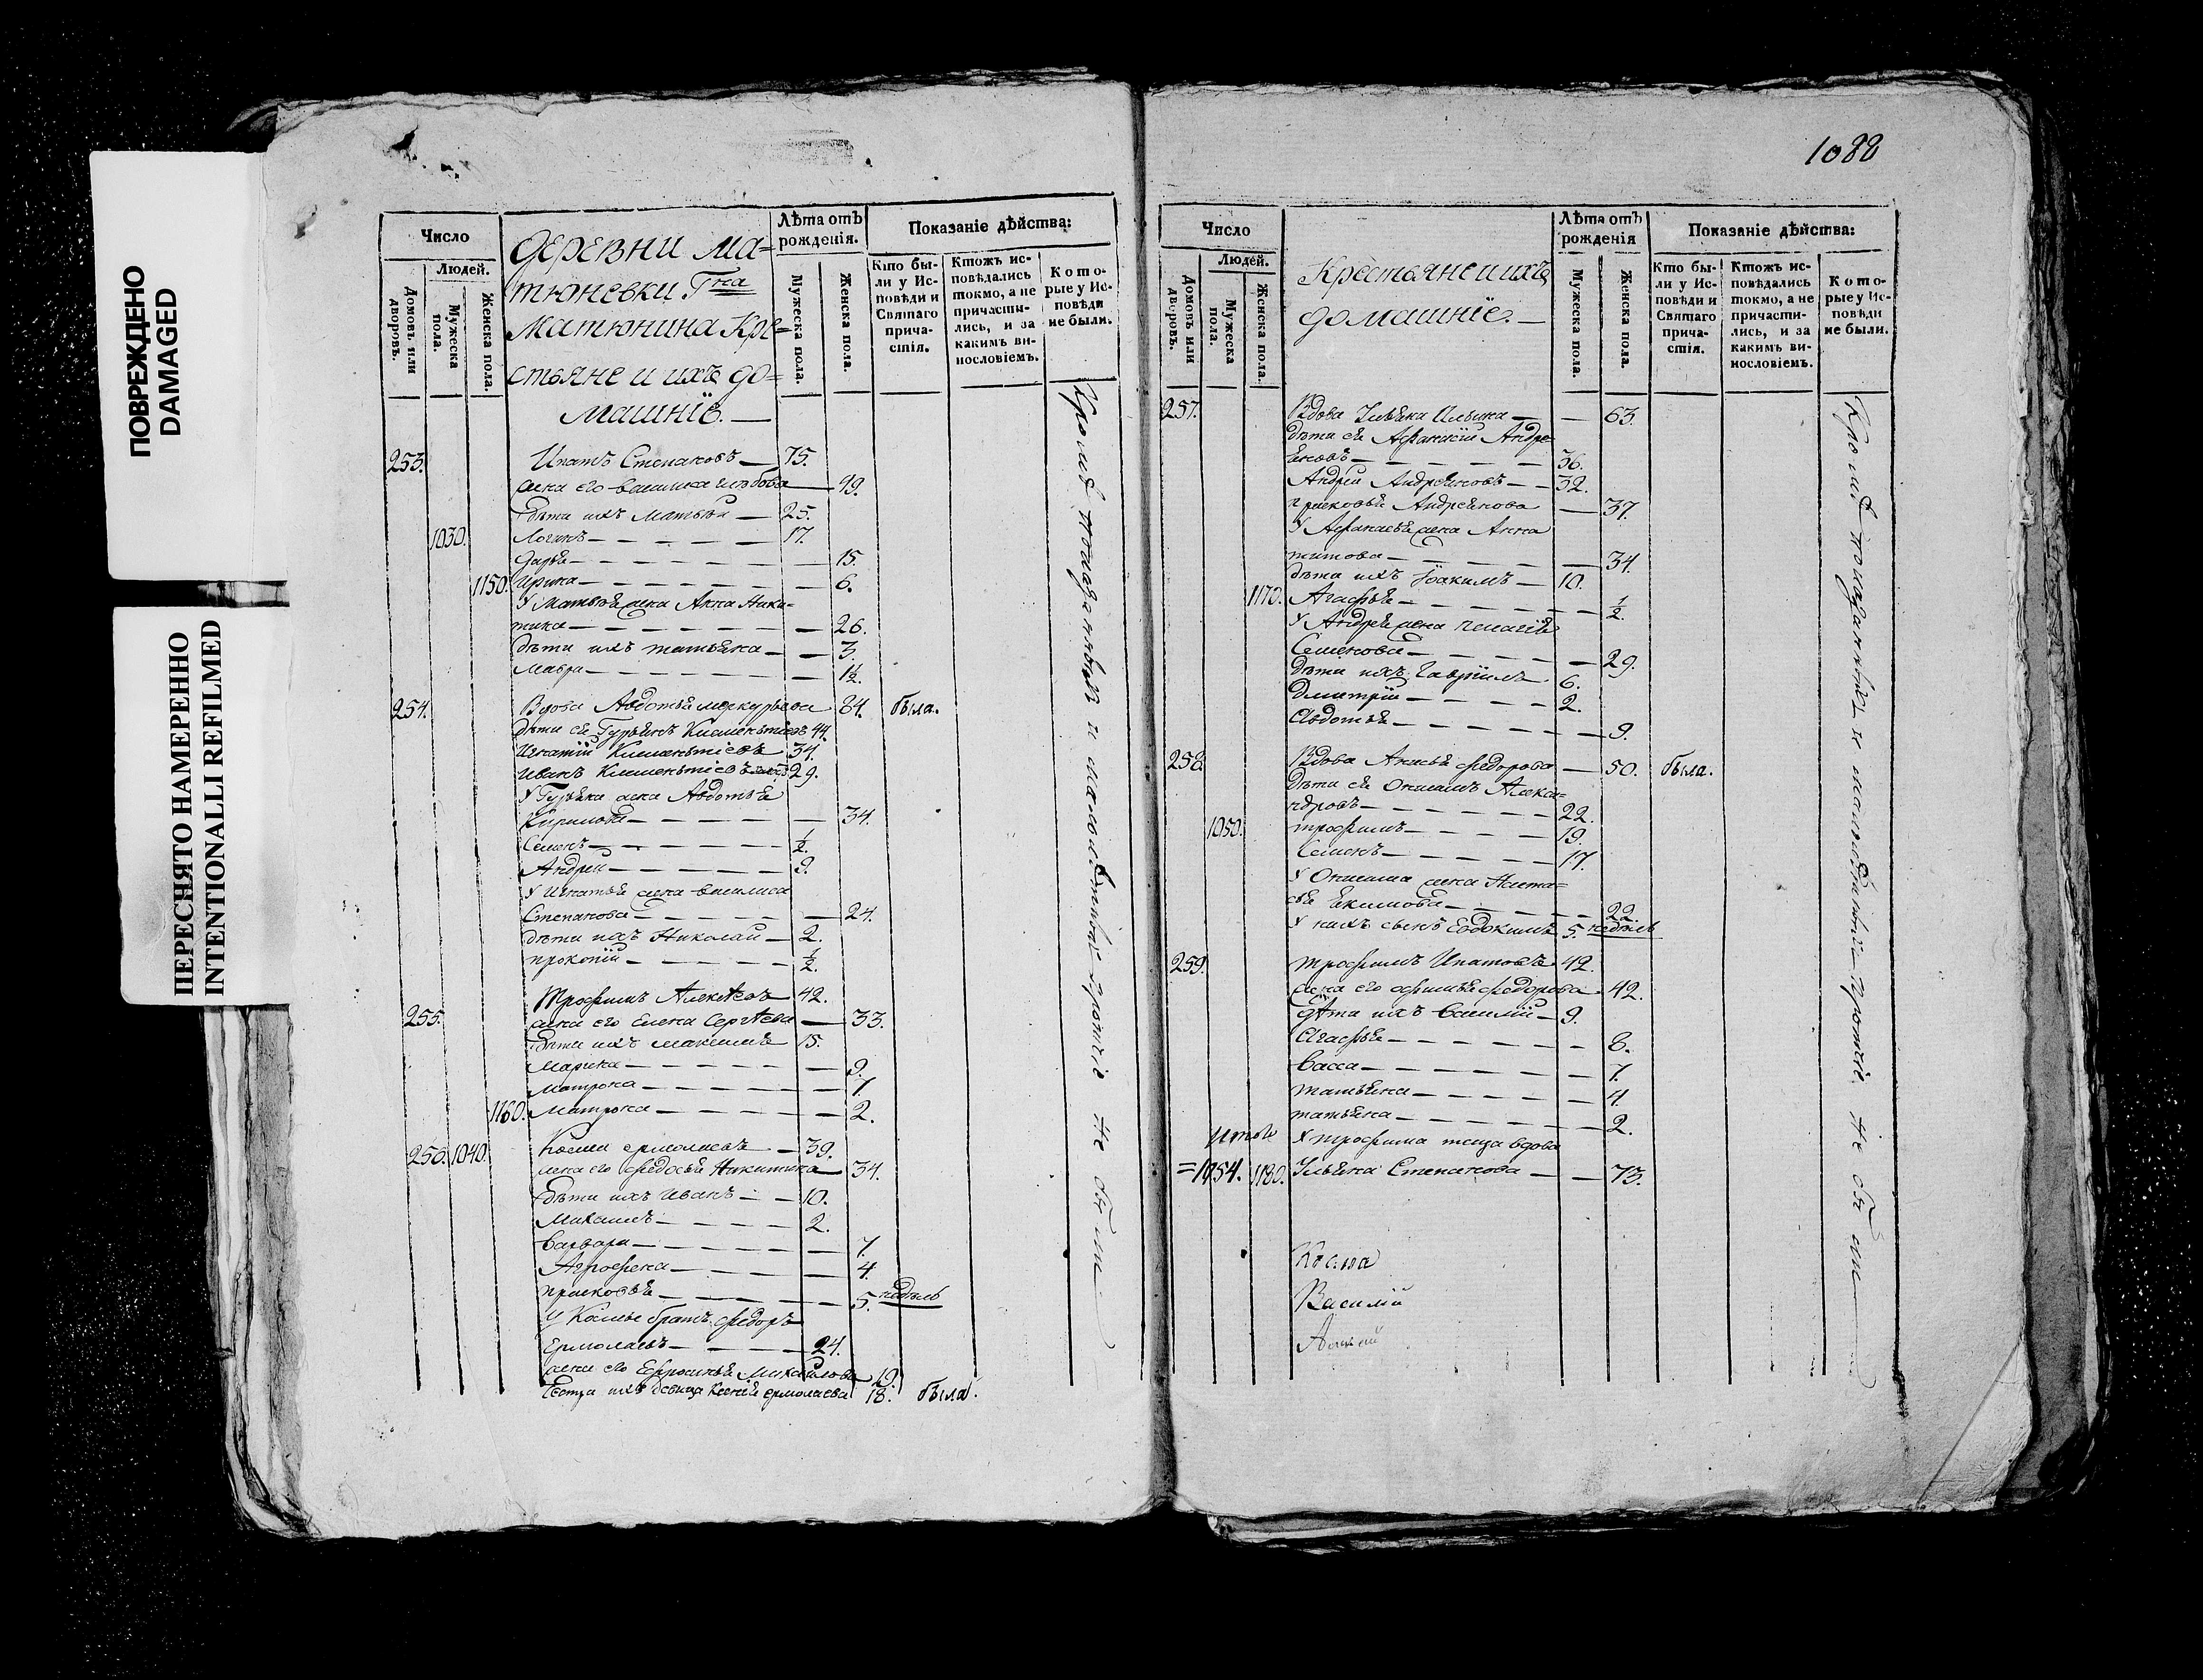 ПОВРЕЖДЕНО
DAMAGED
ПЕРЕСНЯТО НАМЕРЕННО
INTENTIONALLI REFILMED
Число
Людей.
Домовъ или дворовъ.
Мужеска пола.
Женска пола.
деревни Ма=
тюневки Гна
Матюнина Кре=
стьяне и ихъ до=
машніе. —
Лѣта отъ рожденія.
Мужеска пола.
Женска пола.
Показаніе дѣйства:
Кто бы-
ли у Ис-
повѣди и
Святаго
прича-
стія.
Ктожъ ис-
повѣдались
токмо, а не
причасти-
лись, и за
какимъ ви-
нословіемъ.
Кото-
рые у Ис-
повѣди
не были.
253. Ипатъ Степановъ — 75.
жена его Василиса Глѣбова — 49.
дѣти ихъ Матвѣй — 25.
1030. Логинъ — 17.
Дарья — 15.
1150. Ирина — 6.
У Матвѣя жена Анна Ники=
тина — 26.
дѣти ихъ татьяна — 3.
Мавра — 1½.
254. Вдова Авдотья меркурьева 84. была.
дѣти ея Гурьянъ Климентьевъ 44.
Игнатій Климентіевъ 34.
Иванъ Климентіевъ 29.
У Гурьяна жена Авдотья
Кирилова — 34.
Семенъ — ½.
Андрей — 9.
У Игнатья жена Василиса
Степанова — 24.
дѣти ихъ Николай — 2.
прокопій — ½.
255. Трофимъ Алексѣевъ 42.
жена его Елена Сергѣева — 33.
дѣти ихъ Максимъ 15.
Марина — 9.
Матрона — 7.
1160. Матрона — 2.
256. 1040. Косма ермолаевъ — 39.
жена его Федосья Никитина — 34.
дѣти ихъ Иванъ — 10.
Михаилъ — 2.
Варвара — 7.
Агрофена — 4.
прасковья — 5. недѣль
У Космы братъ Федоръ
Ермолаевъ — 24.
жена его Ефросинья Михайлова 19.
Сестра ихъ дѣвица Ксенія ермолаева 18. была.
Кромѣ показанныхъ и малолѣтныхъ прочіе не были
1088
Число
Людей.
Домовъ или дворовъ.
Мужеска пола.
Женска пола.
Крестьяне и ихъ
домашніе. —
Лѣта отъ рожденія
Мужеска пола.
Женска пола.
Показаніе дѣйства:
Кто бы-
ли у Ис-
повѣди и
Святаго
прича-
стія.
Ктожъ ис-
повѣдались
токмо, а не
причасти-
лись, и за
какимъ ви-
нословіемъ.
Кото-
рые у Ис-
повѣди
не были.
257. Вдова Ульяна Ильина — 63.
дѣти ея Афанасій Андре=
яновъ — 36.
Андрей Андреяновъ — 32.
прасковья Андреянова — 37.
У Афанасья жена Анна
титова — 34.
дѣти ихъ Іоакимъ — 10.
1170. Агафья — ½.
У Андрея жена пелагія
Семенова — 29.
дѣти ихъ Гавріилъ 6.
Дмитрій — 2.
Авдотья — 9.
258. Вдова Анисья Федорова — 50. была.
дѣти ея Онисимъ Алекса=
ндровъ — 22.
1050. трофимъ — 19.
Семенъ — 17.
У Онисима жена Наста=
сья Екимова — 22.
У нихъ сынъ Евдокимъ 5. недѣль
259. трофимъ Ипатовъ 42.
жена его афимья Федорова 42.
дѣти ихъ Василій — 9.
Агафья — 8.
Васса — 7.
татьяна — 4.
татьяна — 2.
Итого У трофима теща вдова
= 1054. 1180. Ульяна Степанова — 73.
Косма
Василій
Кромѣ показанныхъ и малолѣтныхъ прочіе не были